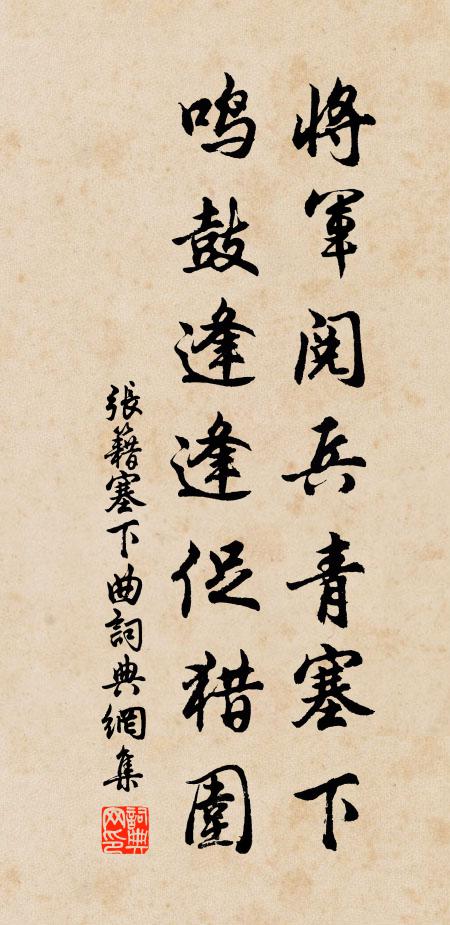 将军阅兵青塞下
鸣鼓逢逢促猎围
張籍塞下曲詞典網集
詞典網印